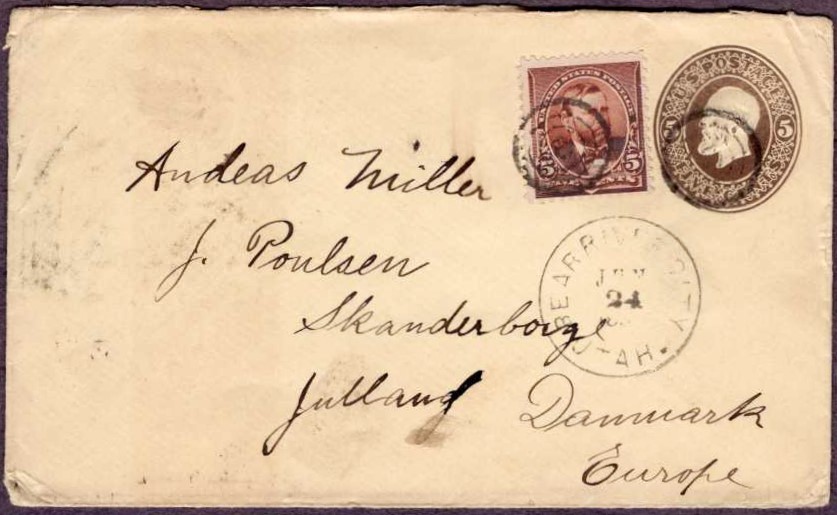 UNITED STATES POSTAGE
5 5
U.S. POSTAGE
5 5
Andeas Miller
J. Poulsen
BEAR RIVER CITY
24
UTAH.
Skanderborge
Jutland Danmark
Europe